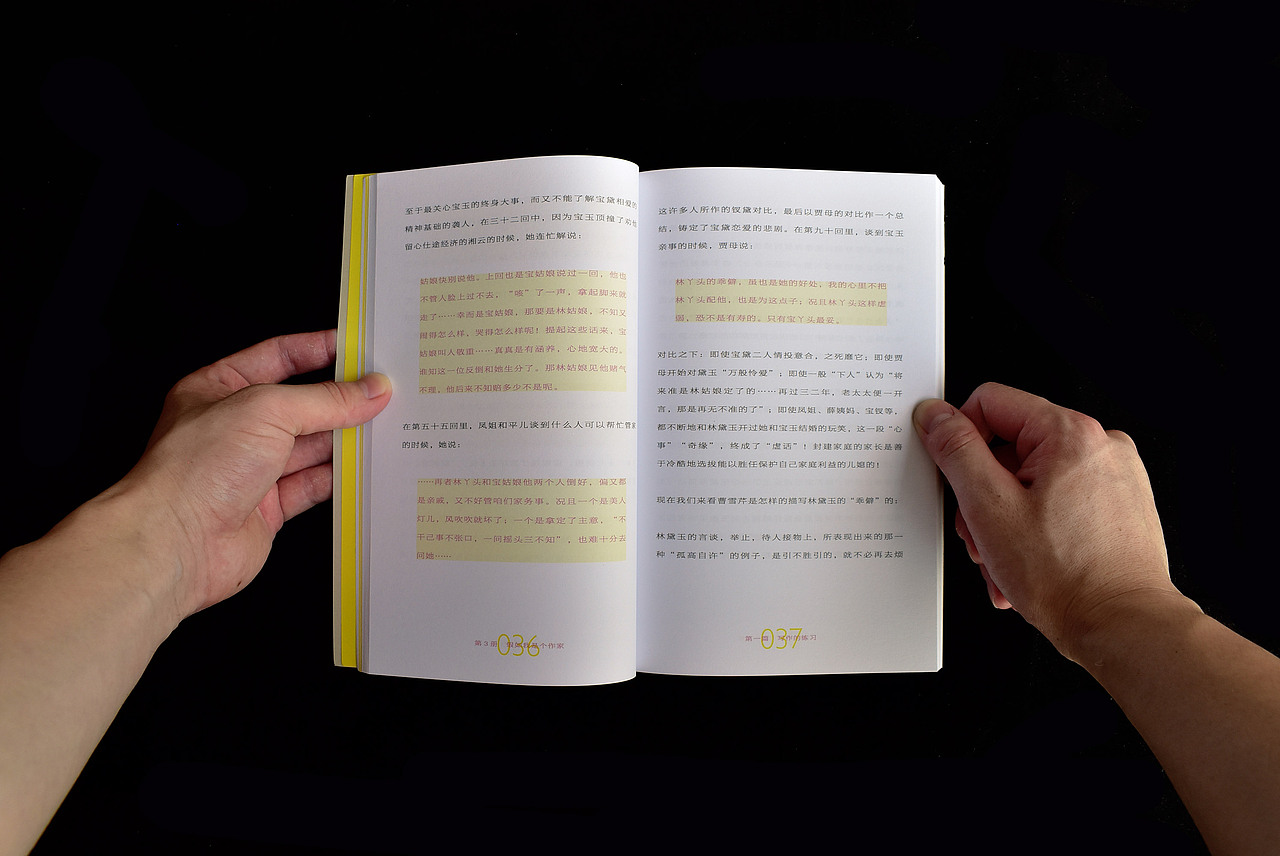 至于最关心宝玉的终身大事，而又不能了解宝黛相爱的
精神基础的袭人，在三十二回中，因为宝玉顶撞了劝他
留心仕途经济的湘云的时候，她连忙解说：
姑娘快别说他。上回也是宝姑娘说过一回，他也
不管人脸上过不去，“咳”了一声，拿起脚来就
走了……幸而是宝姑娘，那要是林姑娘，不知又
闹得怎么样、哭得怎么样呢！提起这些话来，宝
姑娘叫人敬重……真真是有涵养，心地宽大的。
谁知这一位反倒和她生分了。那林姑娘见他赌气
不理，他后来不知赔多少不是呢。
在第五十五回里，凤姐和平儿谈到什么人可以帮忙管家
的时候，她说：
……再者林丫头和宝姑娘他两个人倒好，偏又都
是亲戚，又不好管咱们家务事。况且一个是美人
灯儿，风吹吹就坏了；一个是拿定了主意，“不
干己事不张口，一问摇头三不知”，也难十分去
问她……
第3册 假如我是个作家
036
这许多人所作的钗黛对比，最后以贾母的对比作一个总
结，铸定了宝黛恋爱的悲剧。在第九十回里，谈到宝玉
亲事的时候，贾母说：
林丫头的乖僻，虽也是她的好处，我的心里不把
林丫头配他，也是为这点子；况且林丫头这样虚
弱，恐不是有寿的。只有宝丫头最妥。
对比之下：即使宝黛二人情投意合，之死靡它；即使贾
母开始对黛玉“万般怜爱”；即使一般“下人”认为“将
来准是林姑娘定了的……再过三二年，老太太便一开
言，那是再无不准的了”；即使凤姐、薛姨妈、宝钗等，
都不断地和林黛玉开过她和宝玉结婚的玩笑，这一段“心
事”“奇缘”，终成了“虚话”！封建家庭的家长是善
于冷酷地选拔能以胜任保护自己家庭利益的儿媳的！
现在我们来看曹雪芹是怎样的描写林黛玉的“乖僻”的：
林黛玉的言谈，举止，待人接物上，所表现出来的那一
种“孤高自许”的例子，是引不胜引的，就不必再去烦
第一篇 写作的练习
037